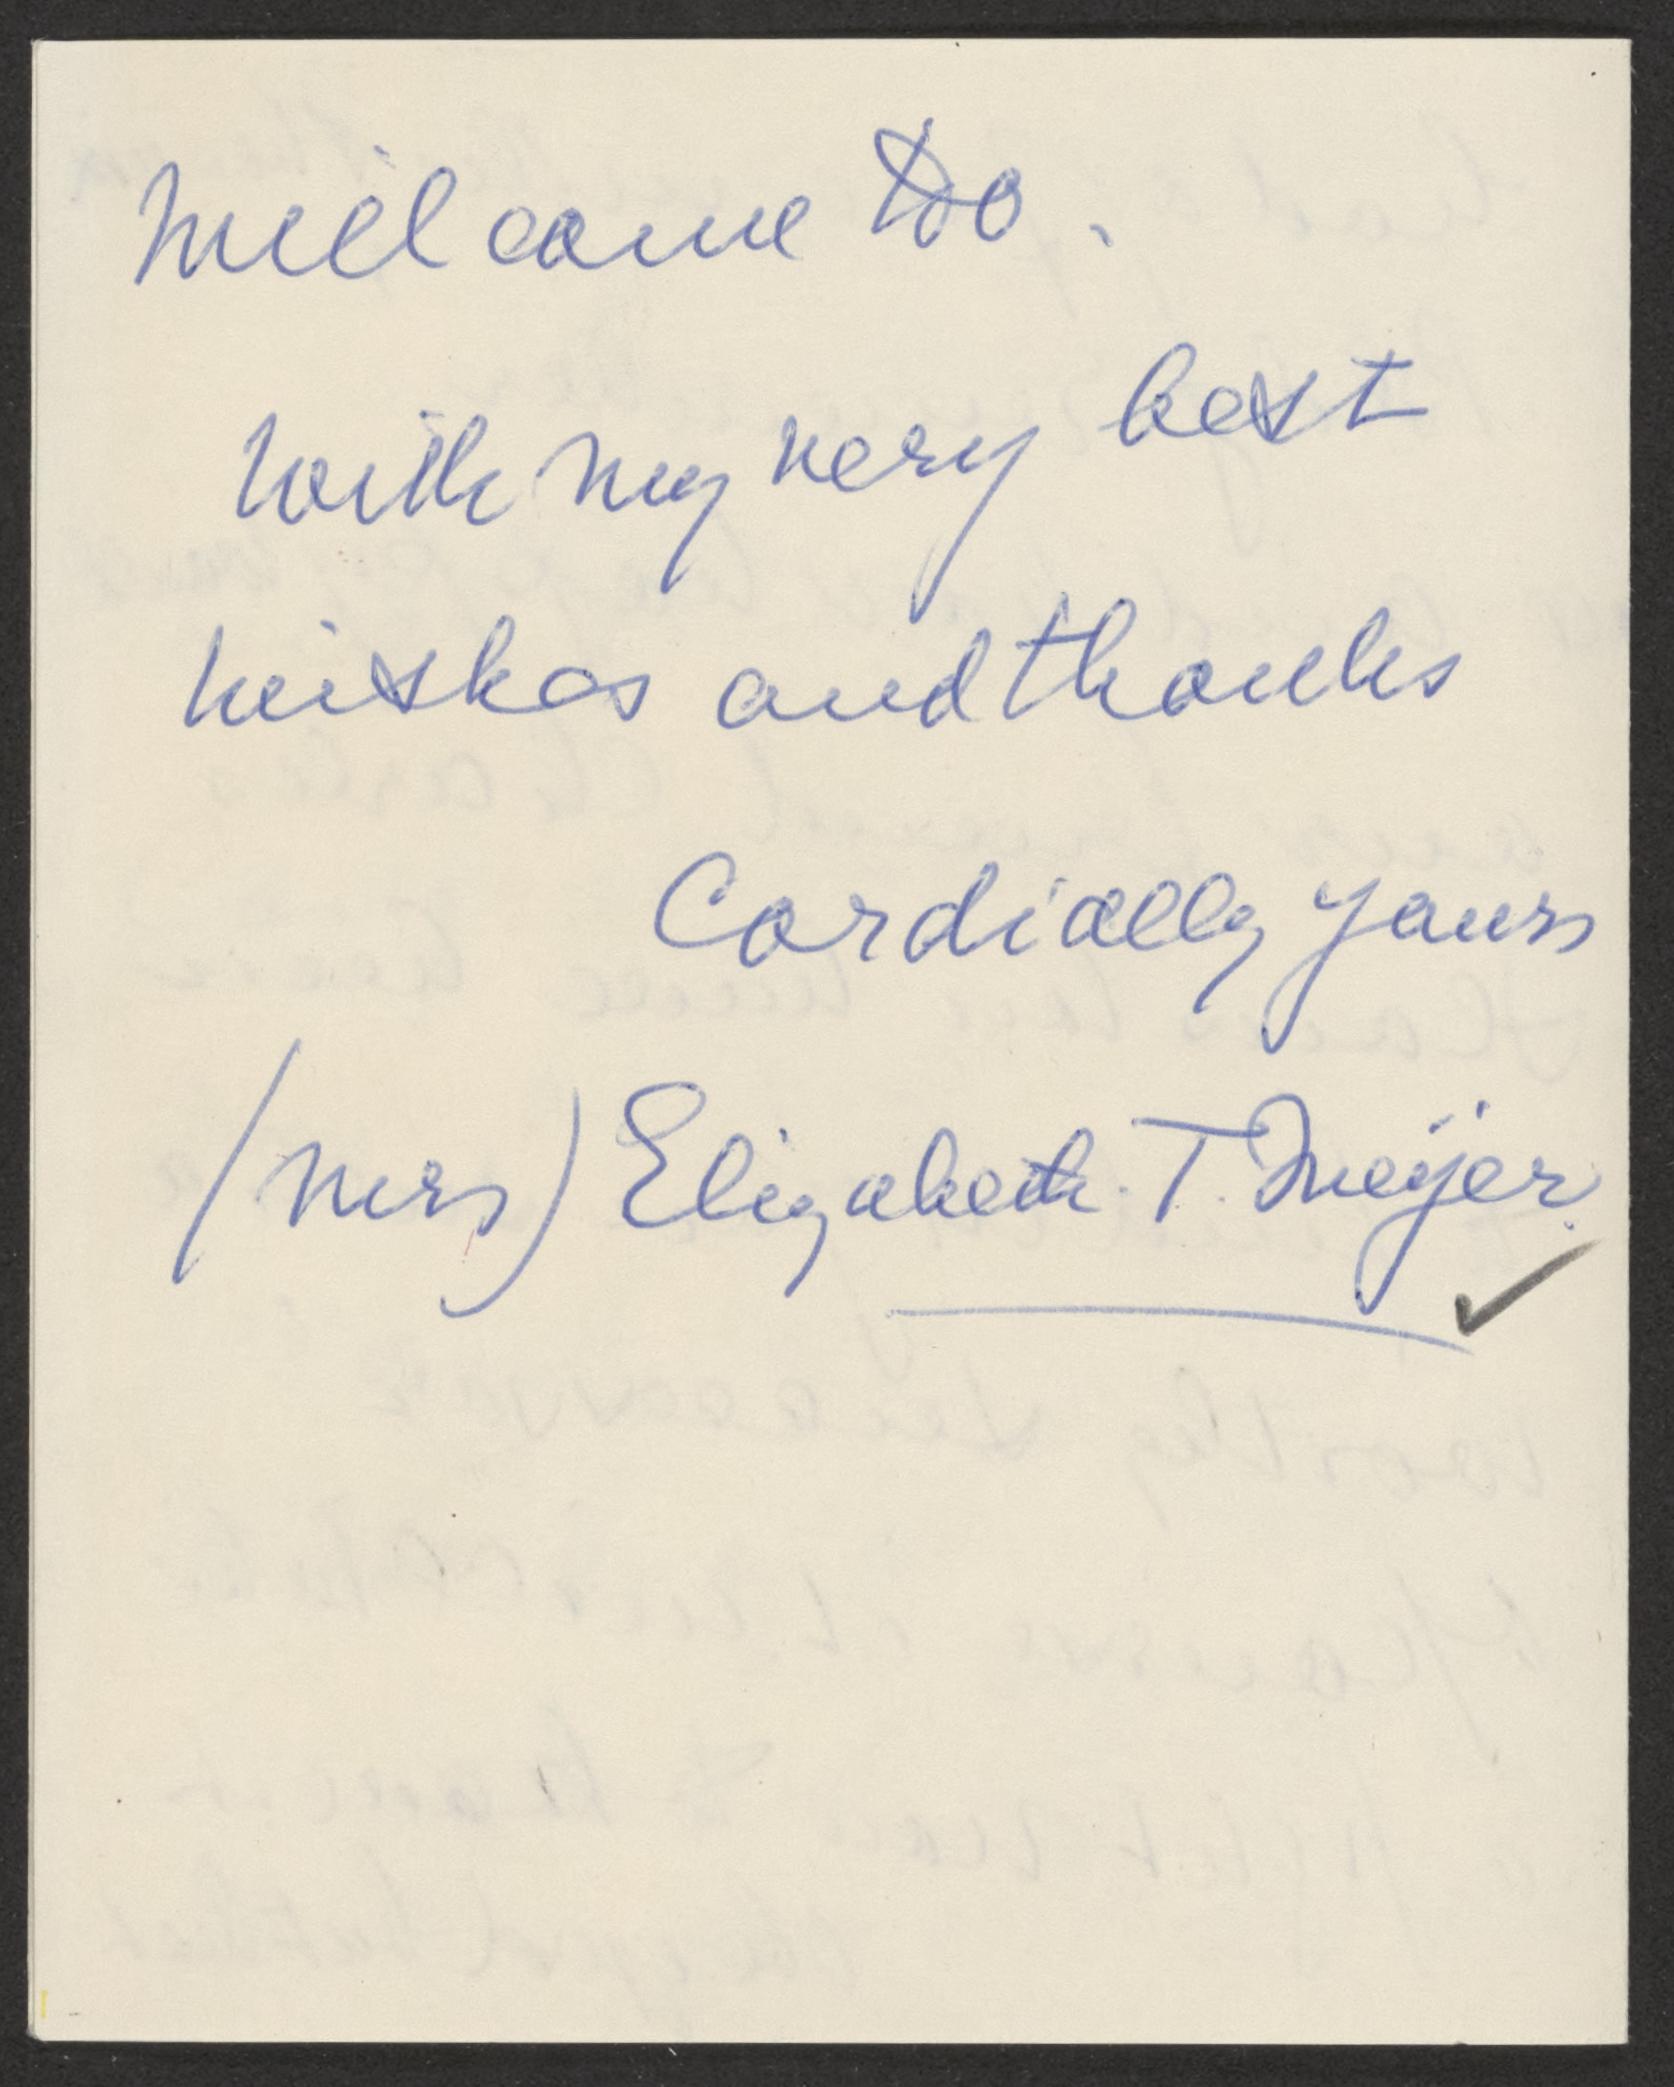 will come too.
With my very best
wishes and thanks
Cordially yours
(Mrs) Elizabeth. T. Meyer.